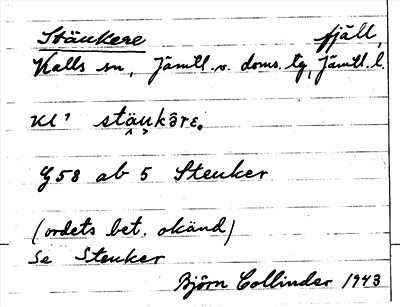 Stäukere fjäll,
Kalls sn, Jämtl. v. doms. tg, Jämtl. l.
Kl' stäukəre.
G58 ab 5 Steuker
(ordets bet. okänd)
Se Steuker
Björn Collinder 1943